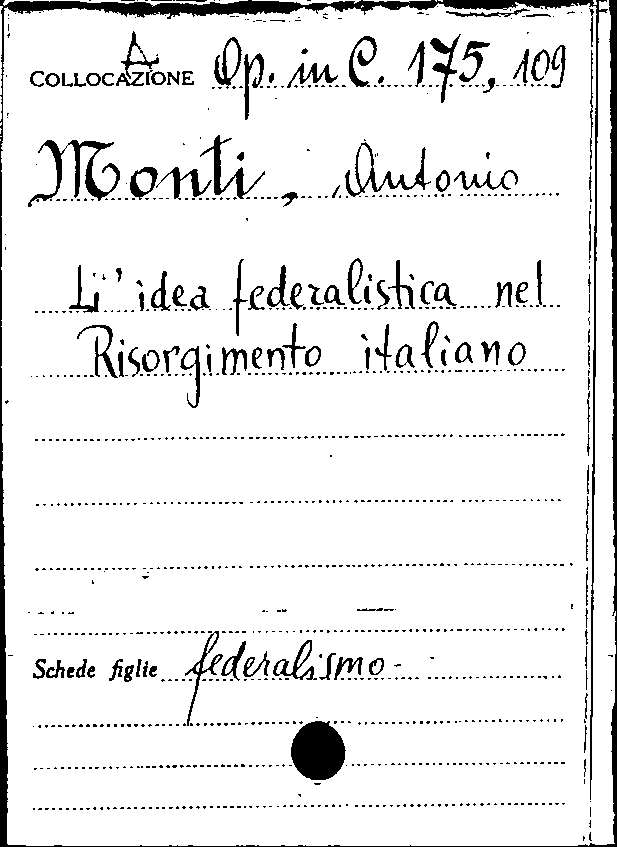 A
COLLOCAZIONE Op. in C. 175, 109
Monti, Antonio
L'idea federalistica nel
Risorgimento italiano
Schede figlie federalismo-